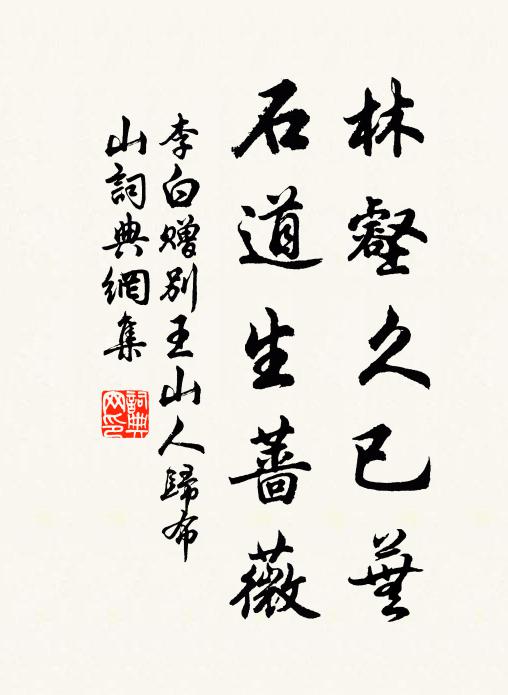 林壑久已蕪
石道生薔薇
李白赠别王山人歸布
山詞典網集
詞典網印